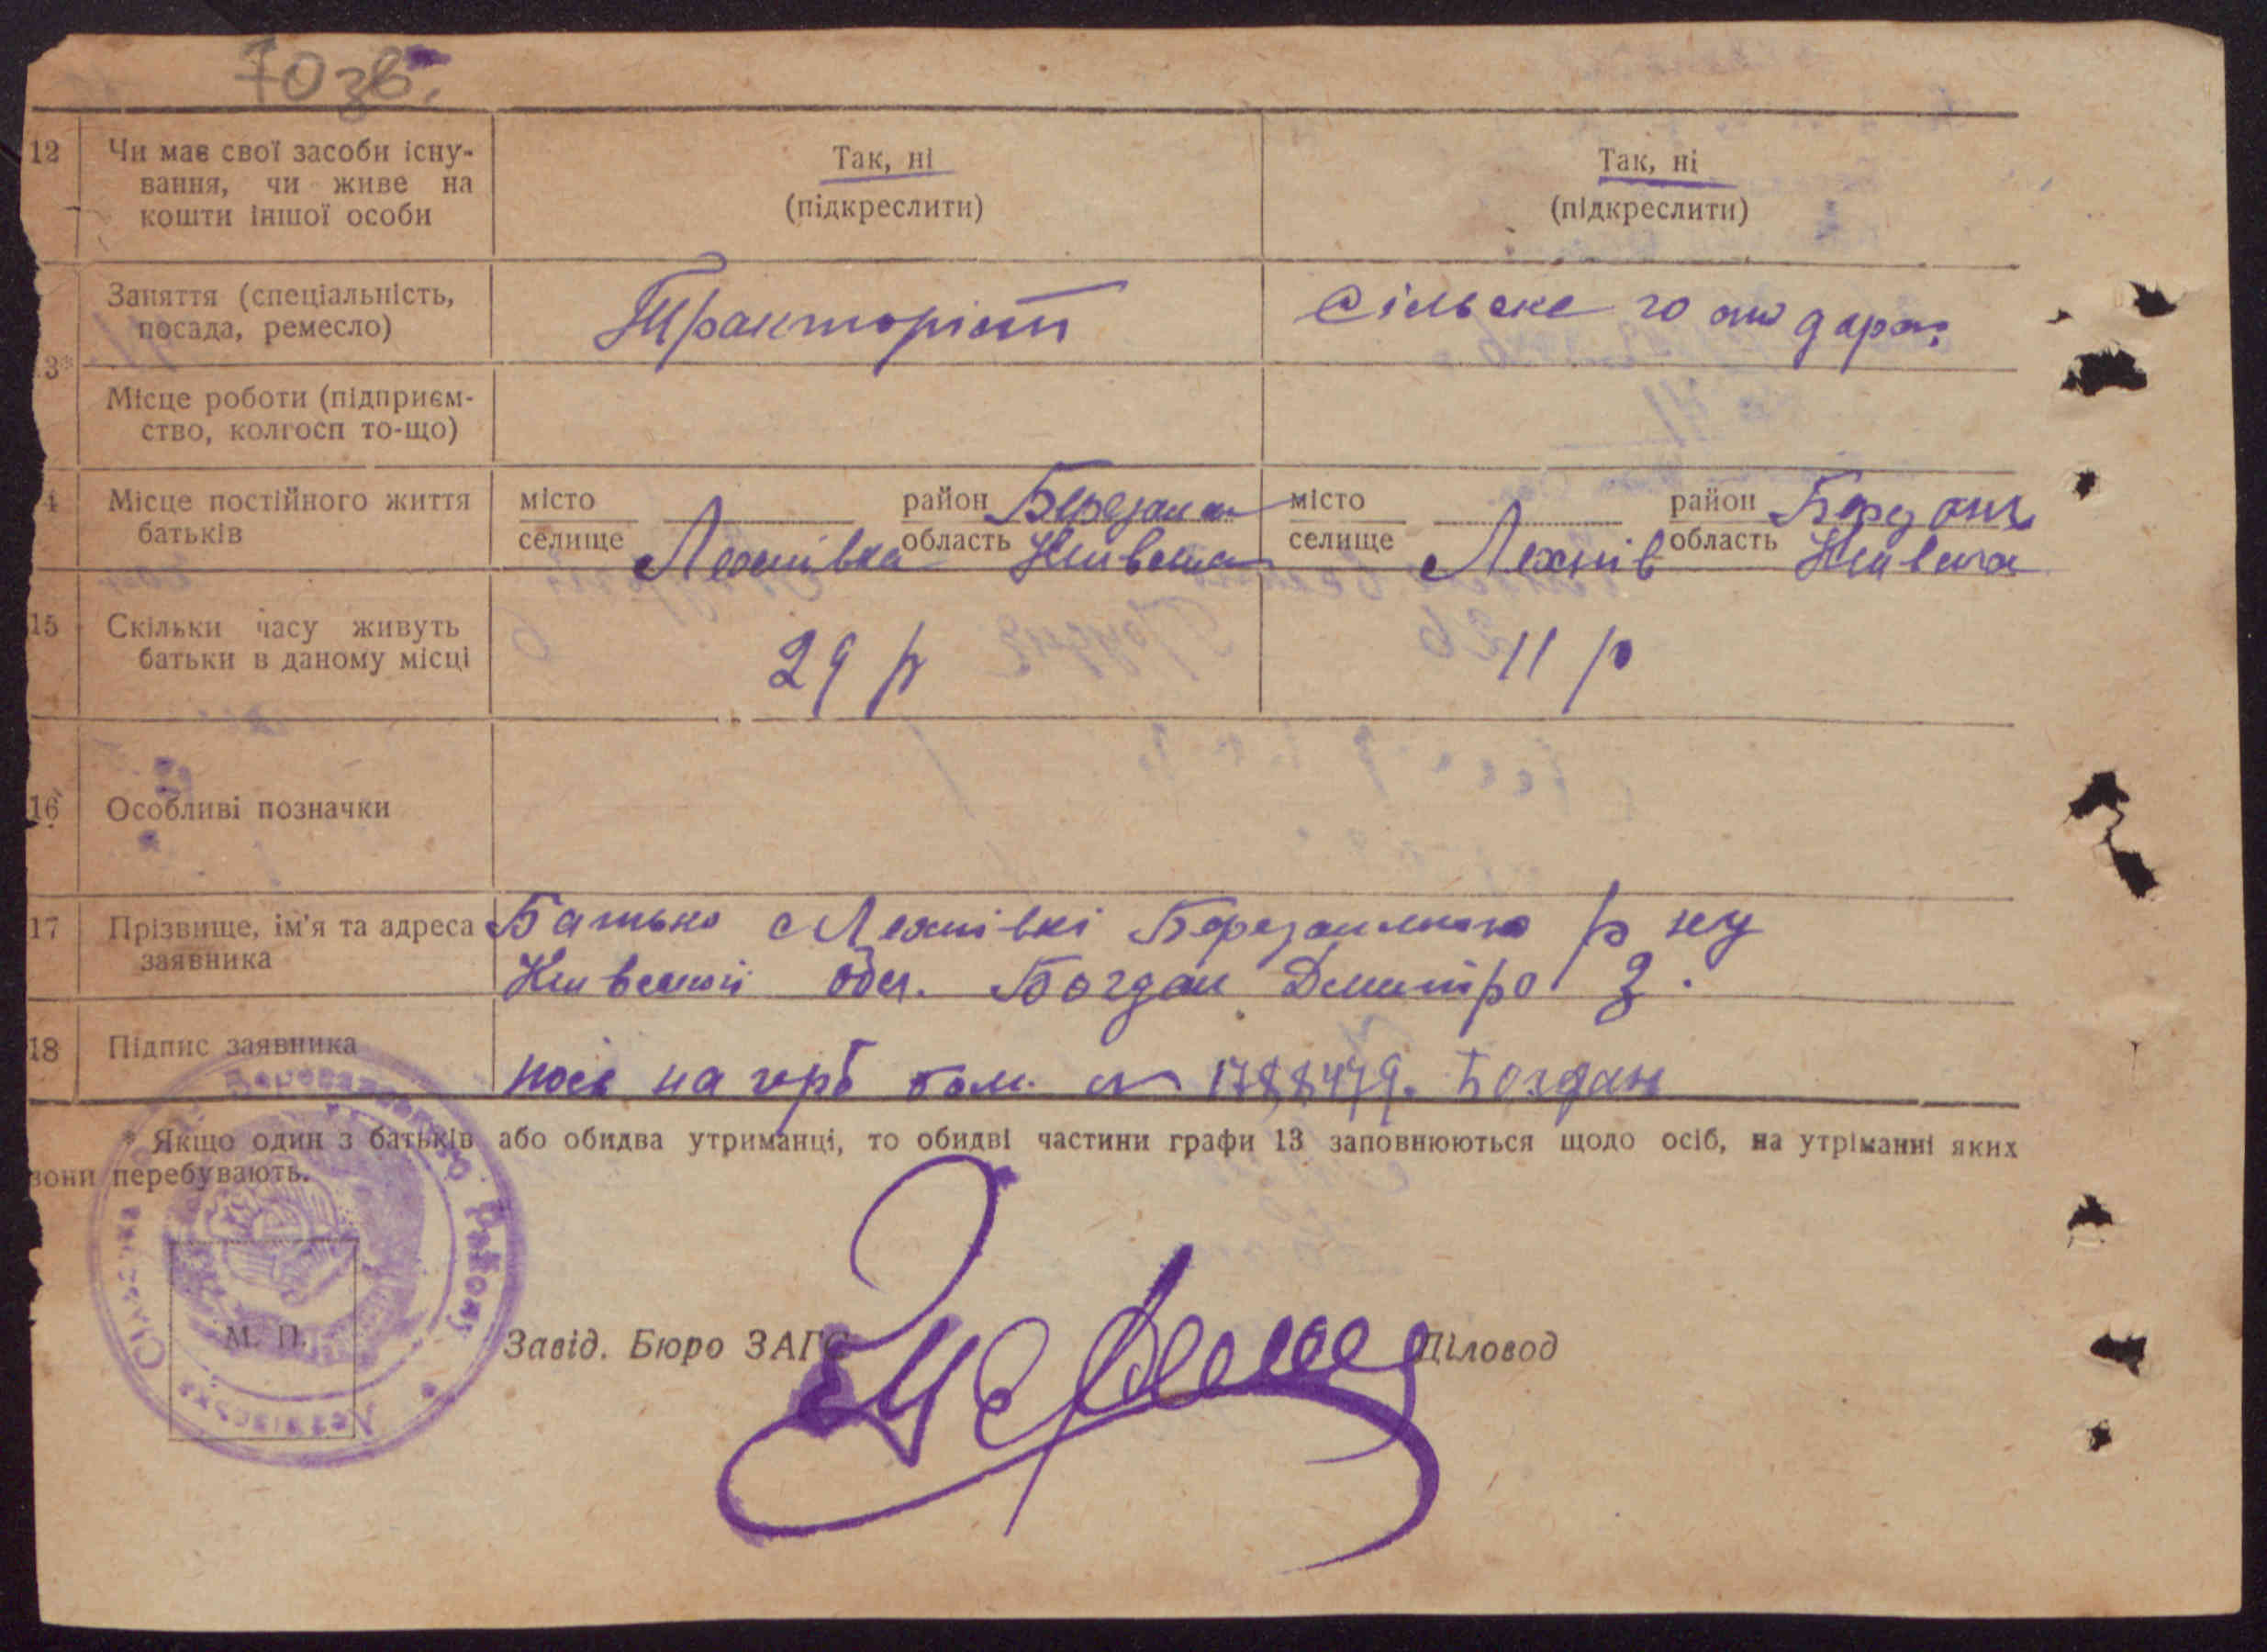 70 зв.
12 Чи має свої засоби існу-
вання, чи живе на
кошти іншої особи
Так, ні
(підкреслити)
Так, ні
(підкреслити)
Заняття (спеціальність,
посада, ремесло)
Тракторіст
Сільске
3*
Місце роботи (підприєм-
ство, колгосп то-що)
4 Місце постійного життя
батьків
місто
селище Лехнівка
район Березанк
область Київська
місто
селище Лехнів
район
область Київська
15 Скільки часу живуть
батьки в даному місці
29 р
11 р
16 Особливі позначки
17 Прізвище, ім'я та адреса
заявника
Батько с Лехнівкі Березанського р ну
Київської обл. Богдан Дмитро З.
18 Підпис заявника
№ 1788479. Богдан
* Якщо один з батьків або обидва утриманці, то обидві частини графи 13 заповнюються щодо осіб, на утріманні яких
вони перебувають.
Лехнівська Сільська Рада Березанського Району
М. П.
Завід. Бюро ЗАГС
Діловод